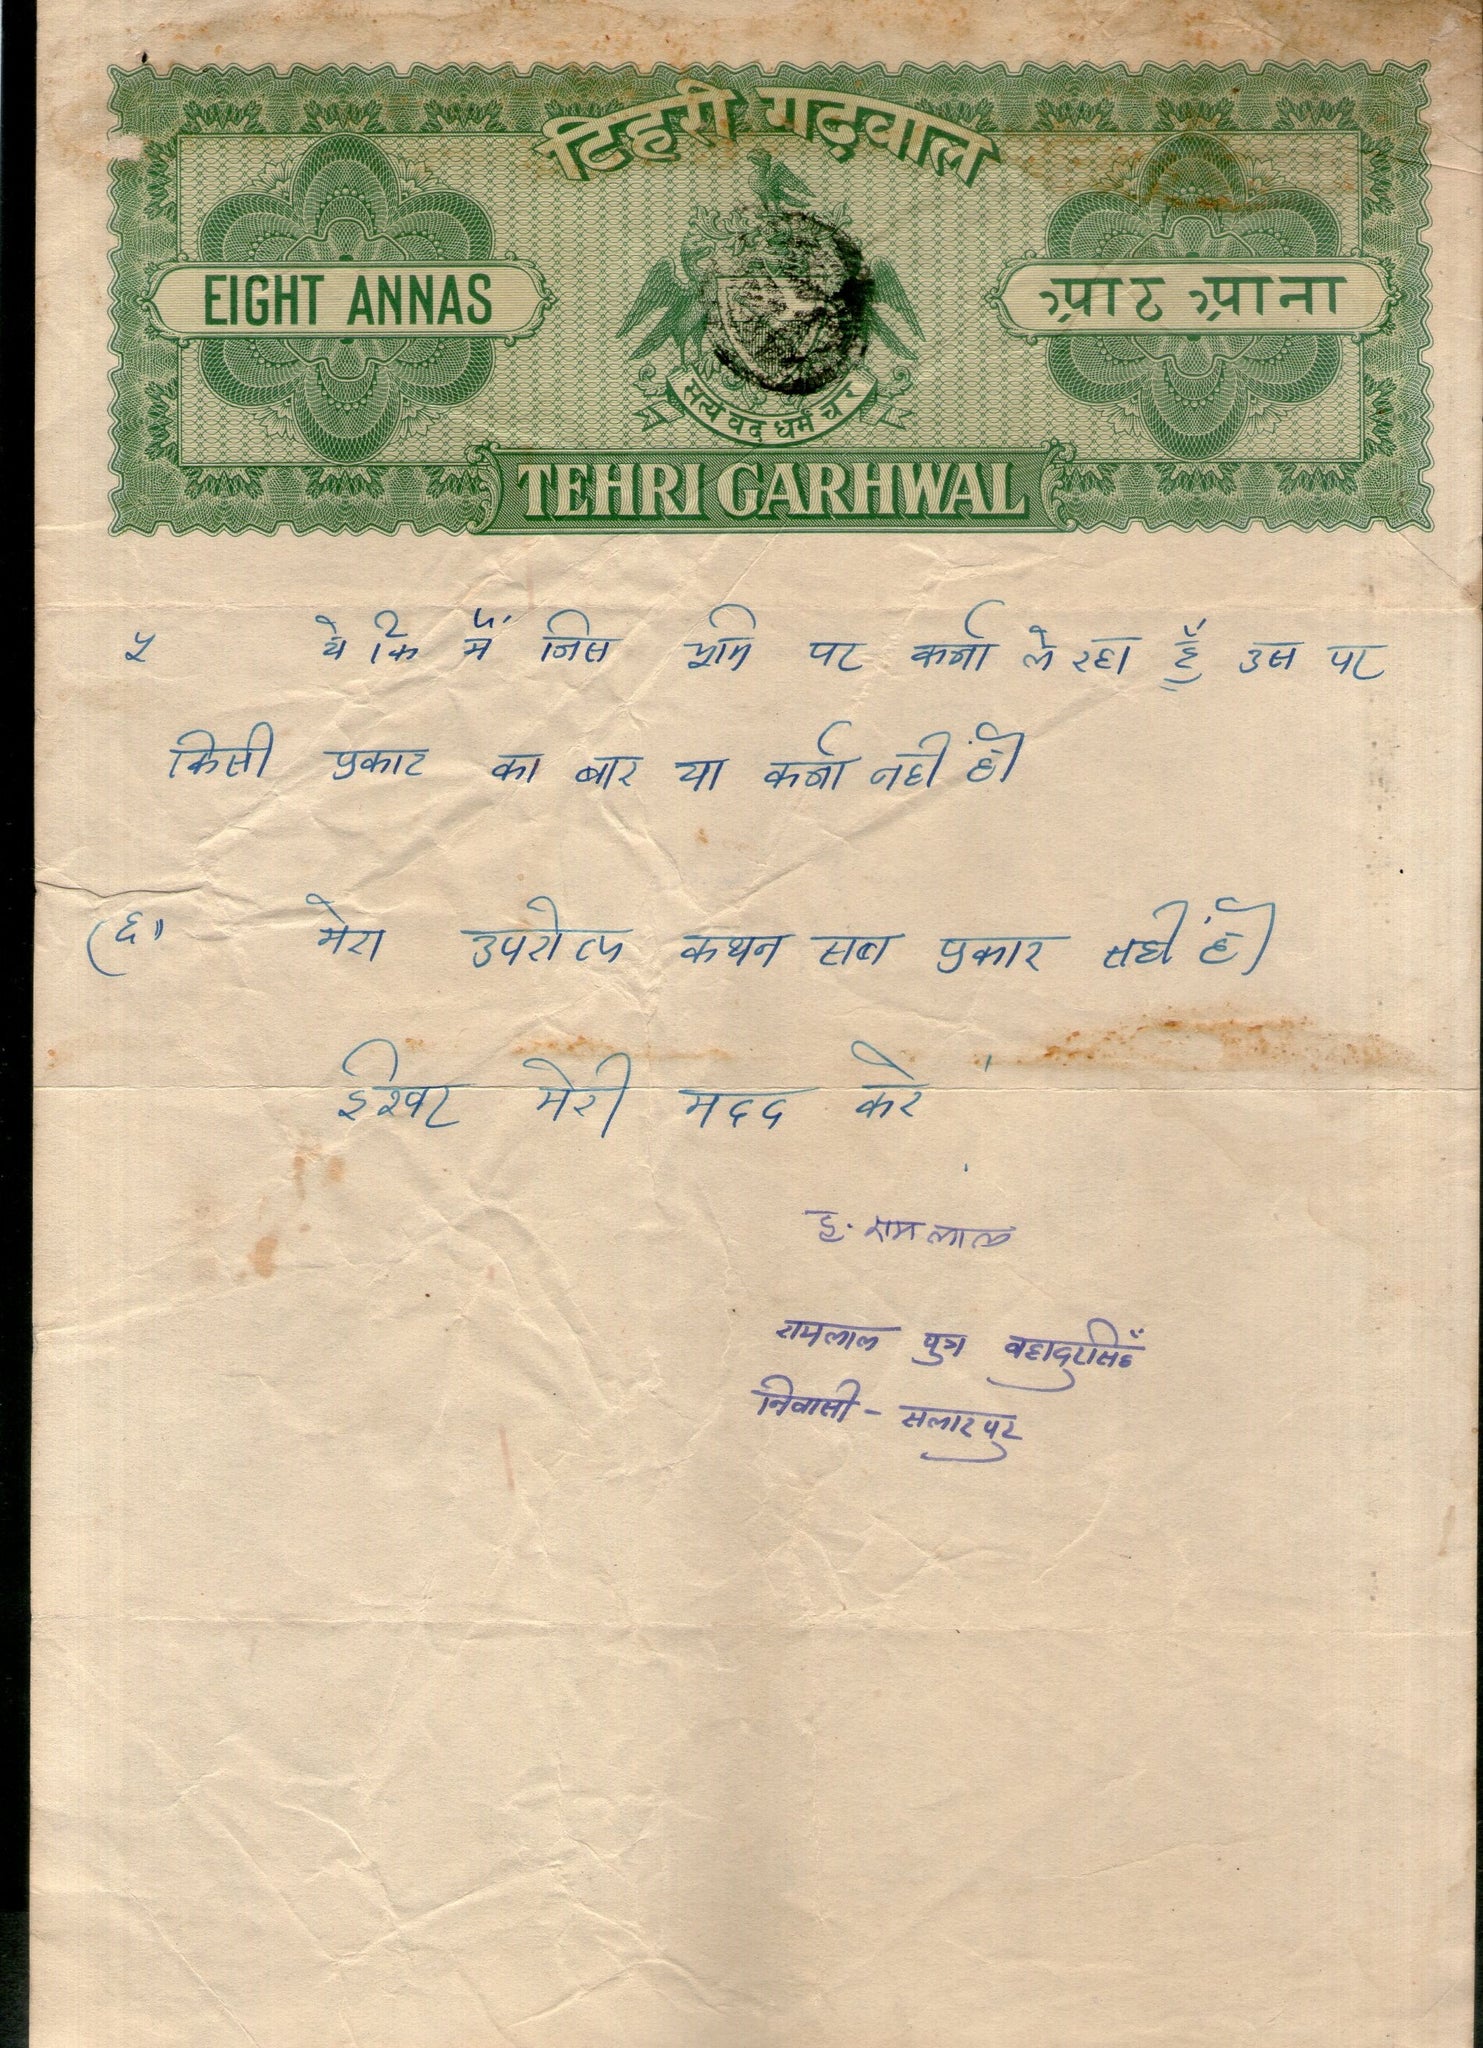 टिहरी गढ़वाल
EIGHT ANNAS
आठ आना
सत्यं वद धर्मं चर
TEHRI GARHWAL
५ ये कि मैं जिस भूमि पर कर्जा ले रहा हूँ उस पर
किसी प्रकार का बार या कर्जा नहीं है।
(६) मेरा उपरोक्त कथन सब प्रकार सही है।
ईश्वर मेरी मदद करे
ह. रामलाल
रामलाल पुत्र बहादुरसिंह
निवासी - सलारपुर